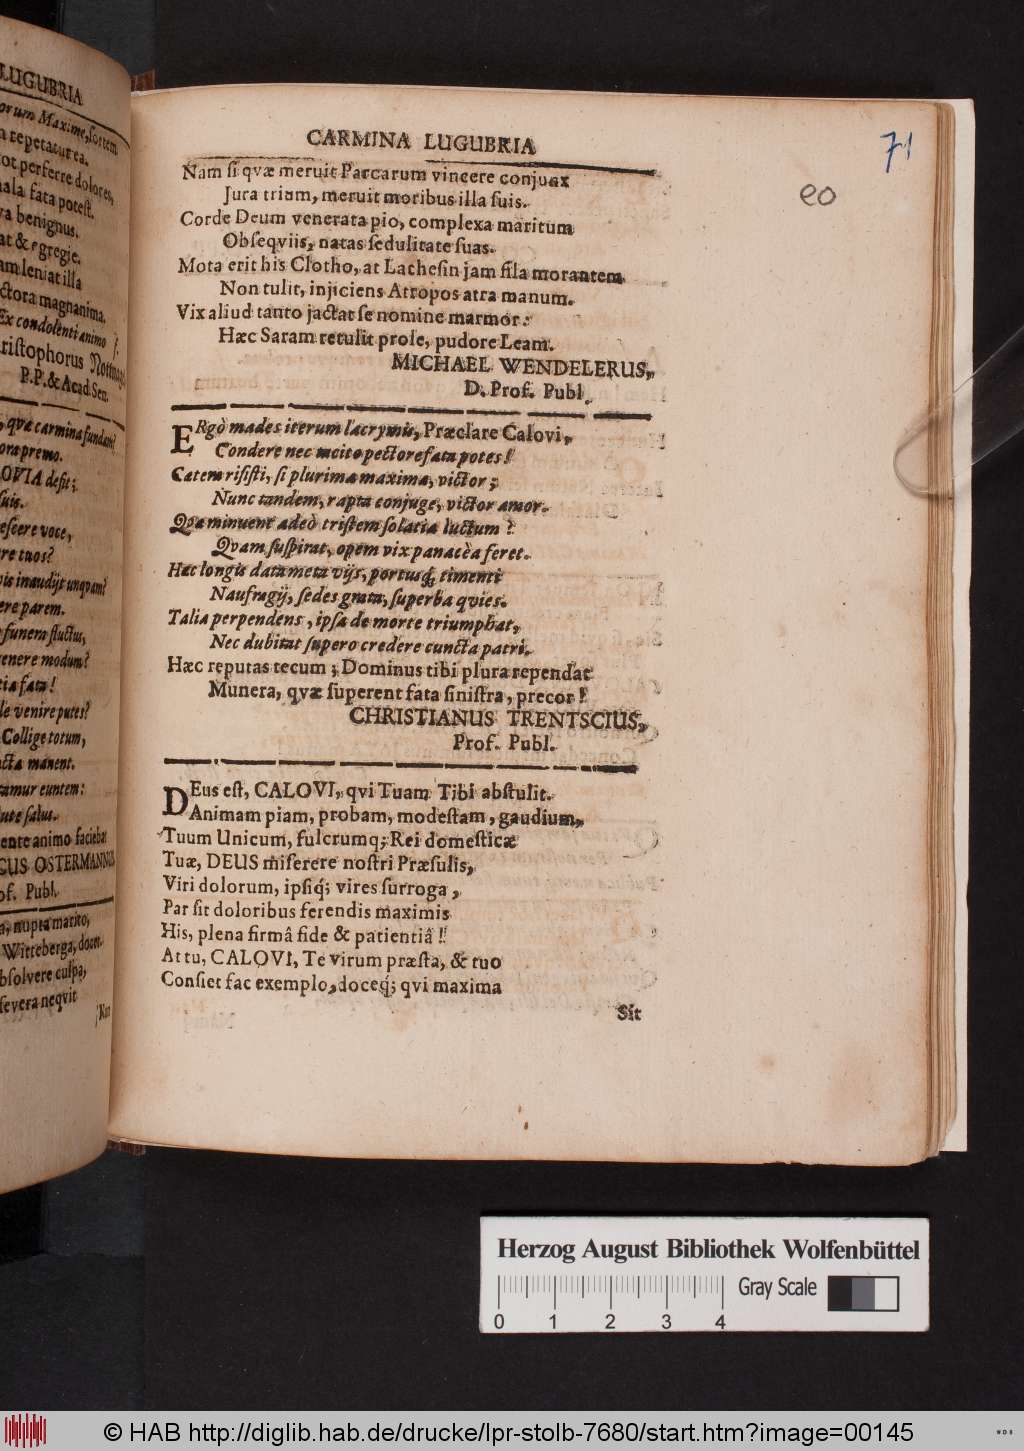 LUGUBRIA
orum Maxime, sortem
repetatur ea.
tot perferre dolores,
mala fata potest.
va benignus.
at & egregie.
am leniat illa
ctora magnanima.
Ex condolenti animo f.
ristophorus Nottnagel
P.P. & Acad. Sen.
, qvæ carmina fundam?
ora premo.
OVIA desit;
suis.
escere voce,
re tuos?
vis inaudijt unqvam?
ere parem.
funera fluctus,
venere modum?
tia fata!
le venire putes?
Collige totum,
cta manent.
amur euntem:
ute salus.
ente animo faciebat
CUS OSTERMANNUS
of. Publ.
a, nupta marito,
Witteberga, docet.
bsolvere culpa,
severa neqvit
Nam
CARMINA LUGUBRIA
71
eo
Nam si qvæ meruit Parcarum vincere conjunx
Jura trium, meruit moribus illa suis.
Corde Deum venerata pio, complexa maritum
Obseqviis, natas sedulitate suas.
Mota erit his Clotho, at Lachesin jam fila morantem
Non tulit, injiciens Atropos atra manum.
Vix aliud tanto jactat se nomine marmor:
Hæc Saram retulit prole, pudore Leam.
MICHAEL WENDELERUS,
D. Prof. Publ.
ERgò mades iterum lacrymis, Præclare Calovi,
Condere nec tacito pectore fata potes!
Catem risisti, si plurima maxima, victor;
Nunc tandem, rapta conjuge, victor amor.
Qva minuent adeò tristem solatia luctum?
Qvam suspirat, opem vix panacèa feret.
Hæc longis data meta vijs, portusq; timenti
Naufragij, sedes grata, superba qvies.
Talia perpendens, ipsa de morte triumphat,
Nec dubitat supero credere cuncta patri.
Hæc reputas tecum; Dominus tibi plura rependat
Munera, qvæ superent fata sinistra, precor!
CHRISTIANUS TRENTSCIUS,
Prof. Publ.
DEus est, CALOVI, qvi Tuam Tibi abstulit.
Animam piam, probam, modestam, gaudium,
Tuum Unicum, fulcrumq; Rei domesticæ
Tuæ, DEUS miserere nostri Præsulis,
Viri dolorum, ipsiq; vires surroga,
Par sit doloribus ferendis maximis
His, plena firmâ fide & patientiâ!
At tu, CALOVI, Te virum præsta, & tuo
Consiet fac exemplo, doceq; qvi maxima
Sit
Herzog August Bibliothek Wolfenbüttel
Gray Scale
0 1 2 3 4
© HAB http://diglib.hab.de/drucke/lpr-stolb-7680/start.htm?image=00145